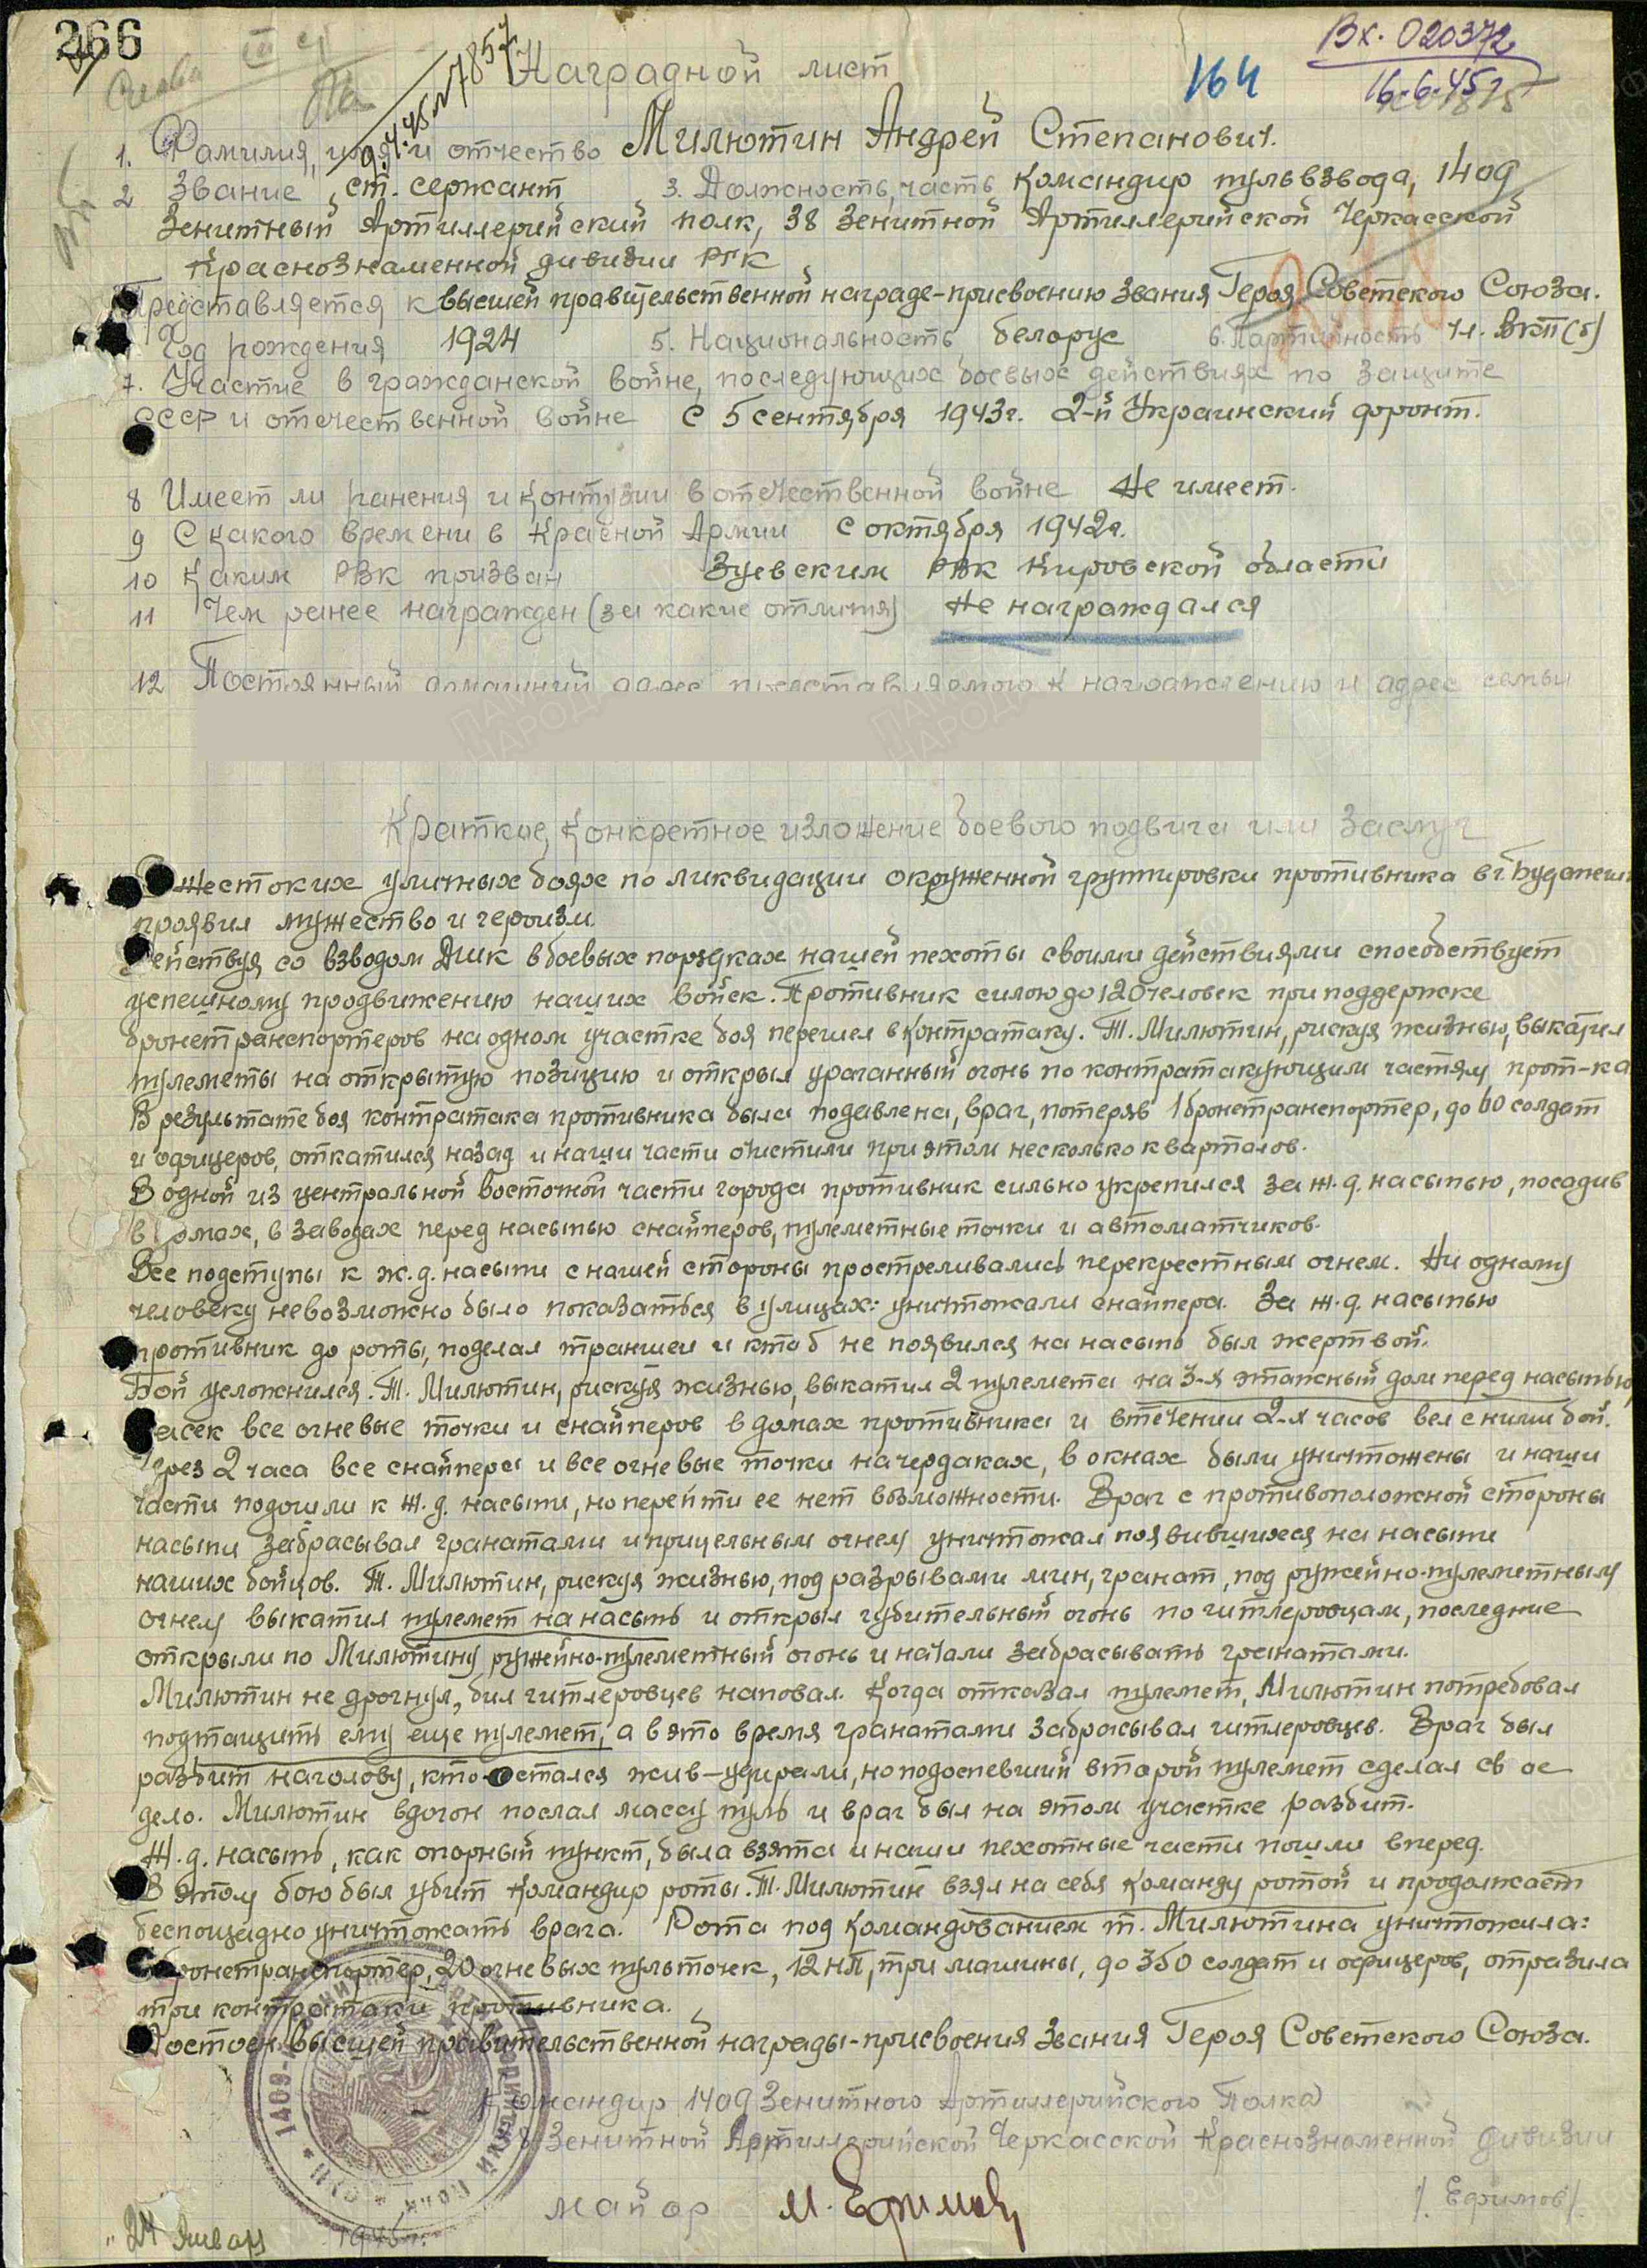 266
Наградной лист
164
Вх. 020372
16.6.45г
1. Фамилия, имя и отчество Милютин Андрей Степанович.
2 Звание ст. сержант 3. Должность, часть Командир пульвзвода, 1409
Зенитный Артиллерийский полк, 38 Зенитной Артиллерийской Черкасской
Краснознаменной дивизии РГК
Представляется к высшей правительственной награде-присвоению звания Героя Советского Союза.
Год рождения 1924 5. Национальность белорус 6. Партийность чл. ВКП(б)
7. Участие в гражданской войне, последующих боевых действиях по защите
СССР и отечественной войне с 5 сентября 1943г. 2-й Украинский фронт.
8 Имеет ли ранения и контузии в отечественной войне Не имеет.
9 С какого времени в Красной Армии с октября 1942г.
10 Каким РВК призван Зуевским РВК Кировской области
11 Чем ранее награжден (за какие отличия) Не награждался
12 Постоянный домашний адрес представляемого к награждению и адрес семьи
Краткое, конкретное изложение боевого подвига или заслуг
В жестоких уличных боях по ликвидации окруженной группировки противника в г. Будапешт
проявил мужество и героизм.
Действуя со взводом ДШК в боевых порядках нашей пехоты своими действиями способствует
успешному продвижению наших войск. Противник силою до 120 человек при поддержке
бронетранспортеров на одном участке боя перешел в контратаку. Т. Милютин, рискуя жизнью, выкатил
пулеметы на открытую позицию и открыл ураганный огонь по контратакующим частям прот-ка
В результате боя контратака противника была подавлена, враг, потеряв 1 бронетранспортер, до 60 солдат
и офицеров, откатился назад и наши части очистили при этом несколько кварталов.
В одной из центральной восточной части города противник сильно укрепился за ж.д. насыпью, посадив
в домах, в заводах перед насыпью снайперов, пулеметные точки и автоматчиков.
Все подступы к ж.д. насыпи с нашей стороны простреливались перекрестным огнем. Ни одному
человеку невозможно было показаться в улицах: уничтожали снайпера. За ж.д. насыпью
противник до роты, поделал траншеи и кто б не появился на насыпь был жертвой.
Бой усложнился. Т. Милютин, рискуя жизнью, выкатил 2 пулемета на 3-х этажный дом перед насыпью,
засек все огневые точки и снайперов в домах противника и в течении 2-х часов вел с ними бой.
Через 2 часа все снайпера и все огневые точки на чердаках, в окнах были уничтожены и наши
части подошли к ж.д. насыпи, но перейти ее нет возможности. Враг с противоположной стороны
насыпи забрасывал гранатами и прицельным огнем уничтожал появившихся на насыпи
наших бойцов. Т. Милютин, рискуя жизнью, под разрывами мин, гранат, под ружейно-пулеметным
огнем выкатил пулемет на насыпь и открыл губительный огонь по гитлеровцам, последние
открыли по Милютину ружейно-пулеметный огонь и начали забрасывать гранатами.
Милютин не дрогнул, бил гитлеровцев наповал. Когда отказал пулемет, Милютин потребовал
подтащить ему еще пулемет, а в это время гранатами забрасывал гитлеровцев. Враг был
разбит наголову, кто остался жив-удирали, но подоспевший второй пулемет сделал свое
дело. Милютин вдогон послал массу пуль и враг был на этом участке разбит.
Ж.д. насыпь, как опорный пункт, была взята и наши пехотные части пошли вперед.
В этом бою был убит командир роты. Т. Милютин взял на себя команду ротой и продолжает
беспощадно уничтожать врага. Рота под командованием т. Милютина уничтожила:
бронетранспортер, 20 огневых пульточек, 12 нп, три машины, до 350 солдат и офицеров, отразила
три контратаки противника.
Достоен высшей правительственной награды-присвоения звания Героя Советского Союза.
Командир 1409 Зенитного Артиллерийского Полка
38 Зенитной Артиллерийской Черкасской Краснознаменной дивизии
майор М. Ефимов /Ефимов/
"24 Января 1945г.